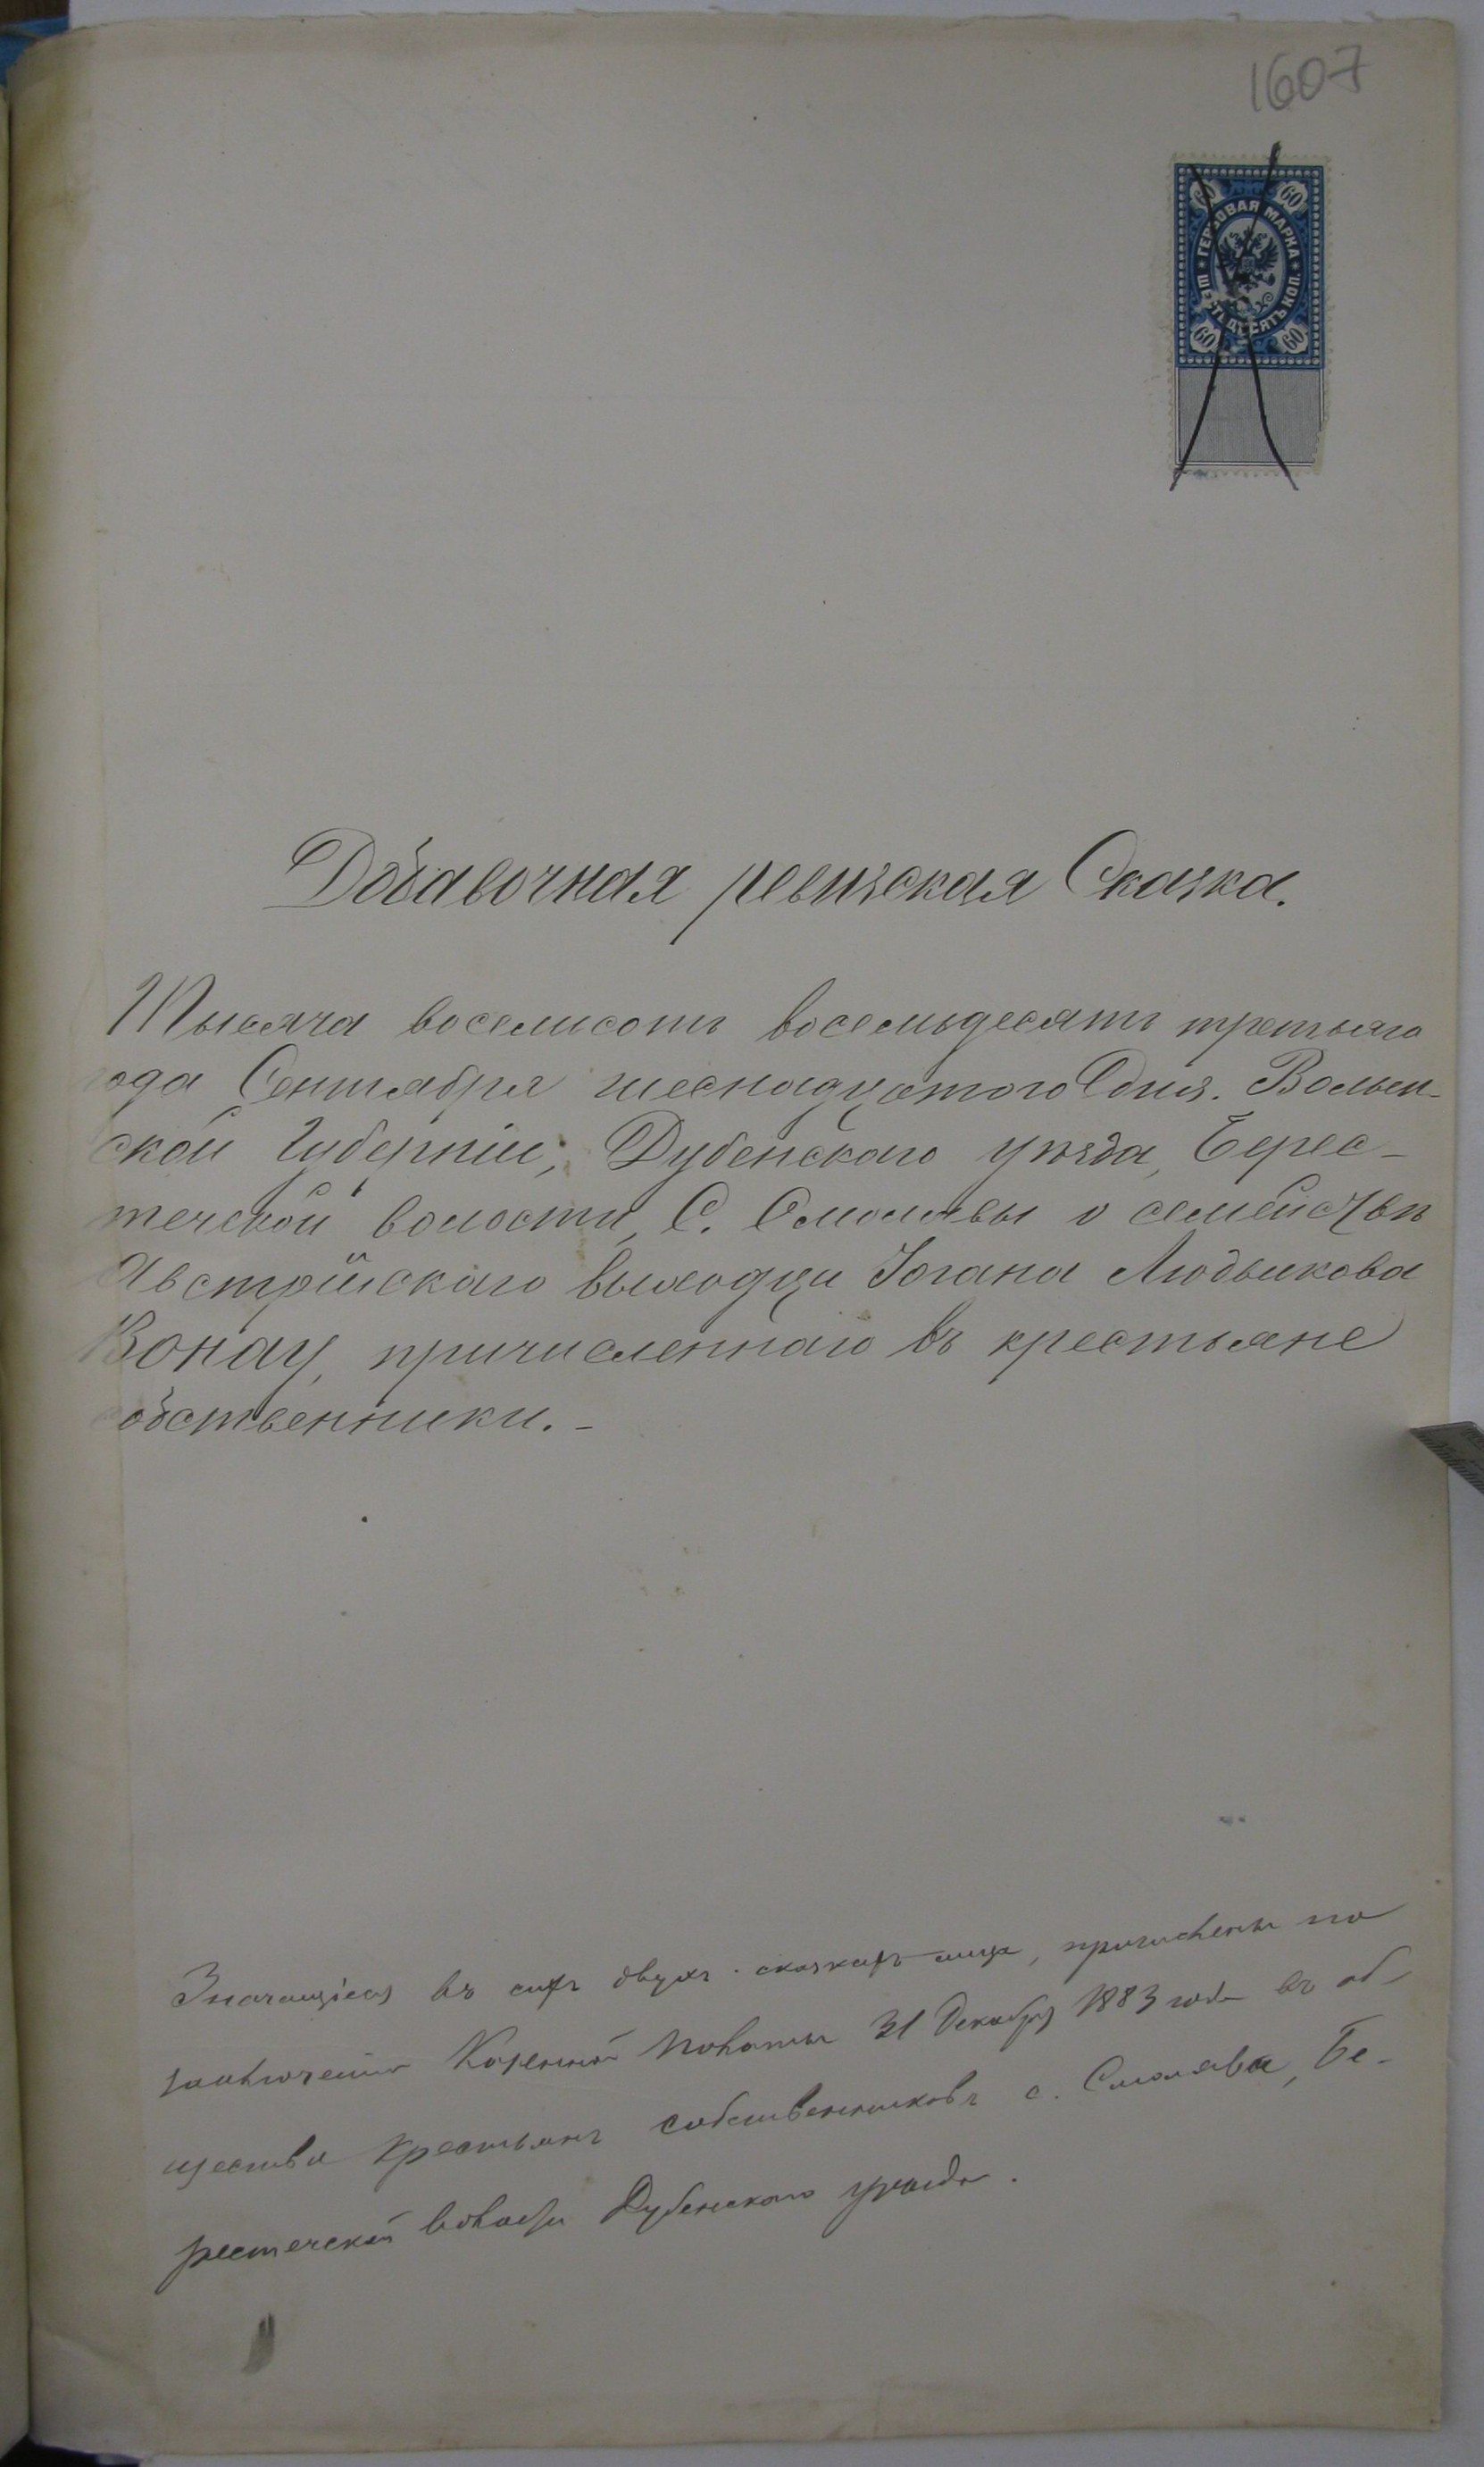 1607
60 60
ГЕРБОВАЯ МАРКА
ШЕСТЬДЕСЯТЪ КОП.
60 60
Добавочная ревизская Сказка.
Тысяча восемсотъ восемьдесятъ третьяго
года Сентября шеснадцатого дня. Волын-
ской Губерніи, Дубенскаго уѣзда, Берес-
течской волости, С. Смолявы о семействѣ
Австрійскаго выходца Іогана Людвикова
Вонау, причисленнаго въ крестьяне
собственники. -
Значащіеся въ сихъ двухъ сказкахъ лица, причислены по
заключенію Казенной Палаты 31 Декабря 1883 года въ об-
щество Крестьянъ собственниковъ с. Смолява, Бе-
рестечской волости Дубенскаго уѣзда.